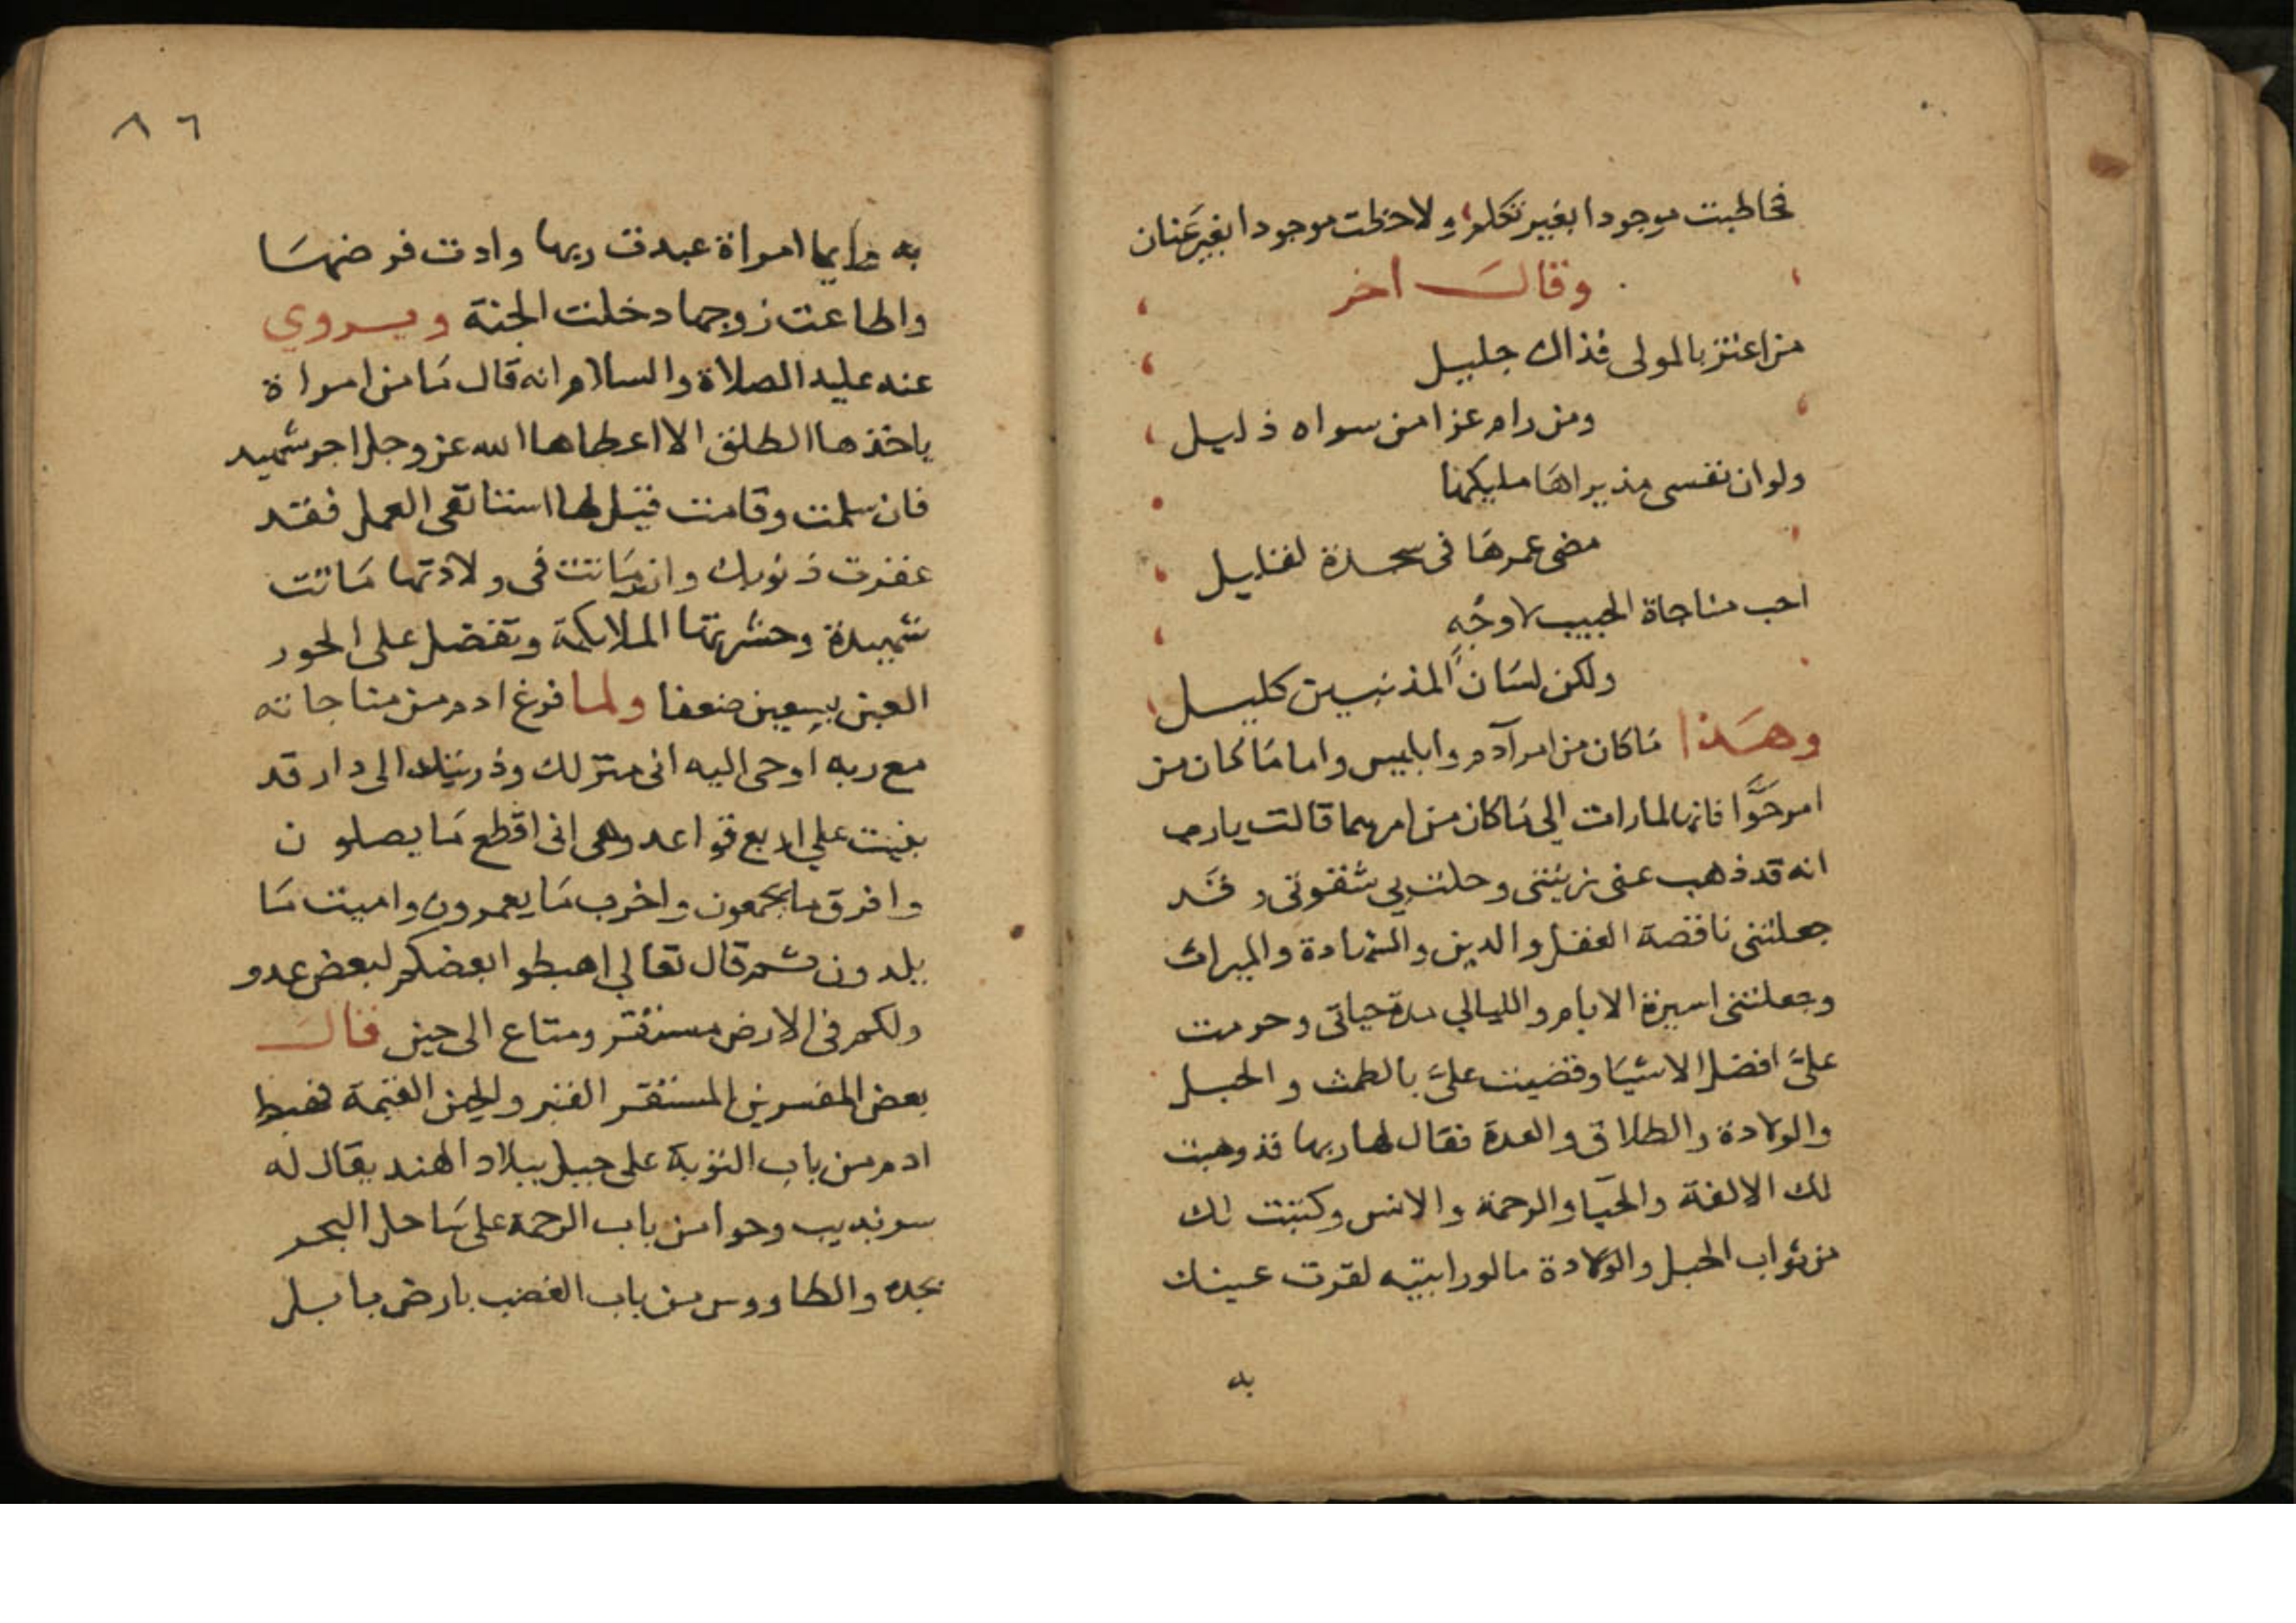 فخاطبت موجودا بغير تكلم ولاحظت موجودا بغير عنان
وقال اخر
من اعتز بالمولى فذاك جليل
ومن رام عزا من سواه ذليل
ولو ان نفسى مذ براها مليكها
مضى عمرها فى سجدة لقليل
احب مناجاة الحبيب لاوجه
ولكن لسان المذنبين كليل
وهذا ماكان من امر آدم وابليس واما ماكان من
امر حوا فانها لما رات الي ماكان من امرهما قالت يارب
انه قد ذهب عنى زينتى وحلت بي شقوتى وقد
جعلتنى ناقصة العقل والدين والشهادة والميراث
وجعلتنى اسيرة الايام والليالي مدة حياتى وحرمت
علىّ افضل الاشيا وقضيت علىّ بالطمث والحبل
والولادة والطلاق والعدة فقال لها ربها قد وهبت
لك الالفة والحيا والرحمة والانس وكتبت لك
من ثواب الحبل والولادة مالو رايتيه لقرت عينك
به
٨٦
به وايما امراة عبدت ربها وادت فرضها
واطاعت زوجها دخلت الجنة ويروي
عنه عليه الصلاة والسلام انه قال ما من امراة
ياخذها الطلق الا اعطاها الله عز وجل اجر شهيد
فان سلمت وقامت قيل لها استانفى العمل فقد
غفرت ذنوبك وان ماتت فى ولادتها ماتت
شهيدة وحشرتها الملايكة وتفضل على الحور
العين بسبعين ضعفا ولما فرغ ادم من مناجاته
مع ربه اوحى اليه انى منزلك وذريتك الى دار قد
بنيت علي اربع قواعد وهى انى اقطع ما يصلون
وافرق ما يجمعون واخرب ما يعمرون واميت ما
يلدون ثم قال تعالي اهبطوا بعضكم لبعض عدو
ولكم فى الارض مستقر ومتاع الى حين قال
بعض المفسرين المستقر القبر والحين القيمة فهبط
ادم من باب التوبة على جبل ببلاد الهند يقال له
سرنديب وحوا من باب الرحمة على ساحل البحر
بجده والطاووس من باب الغضب بارض بابل